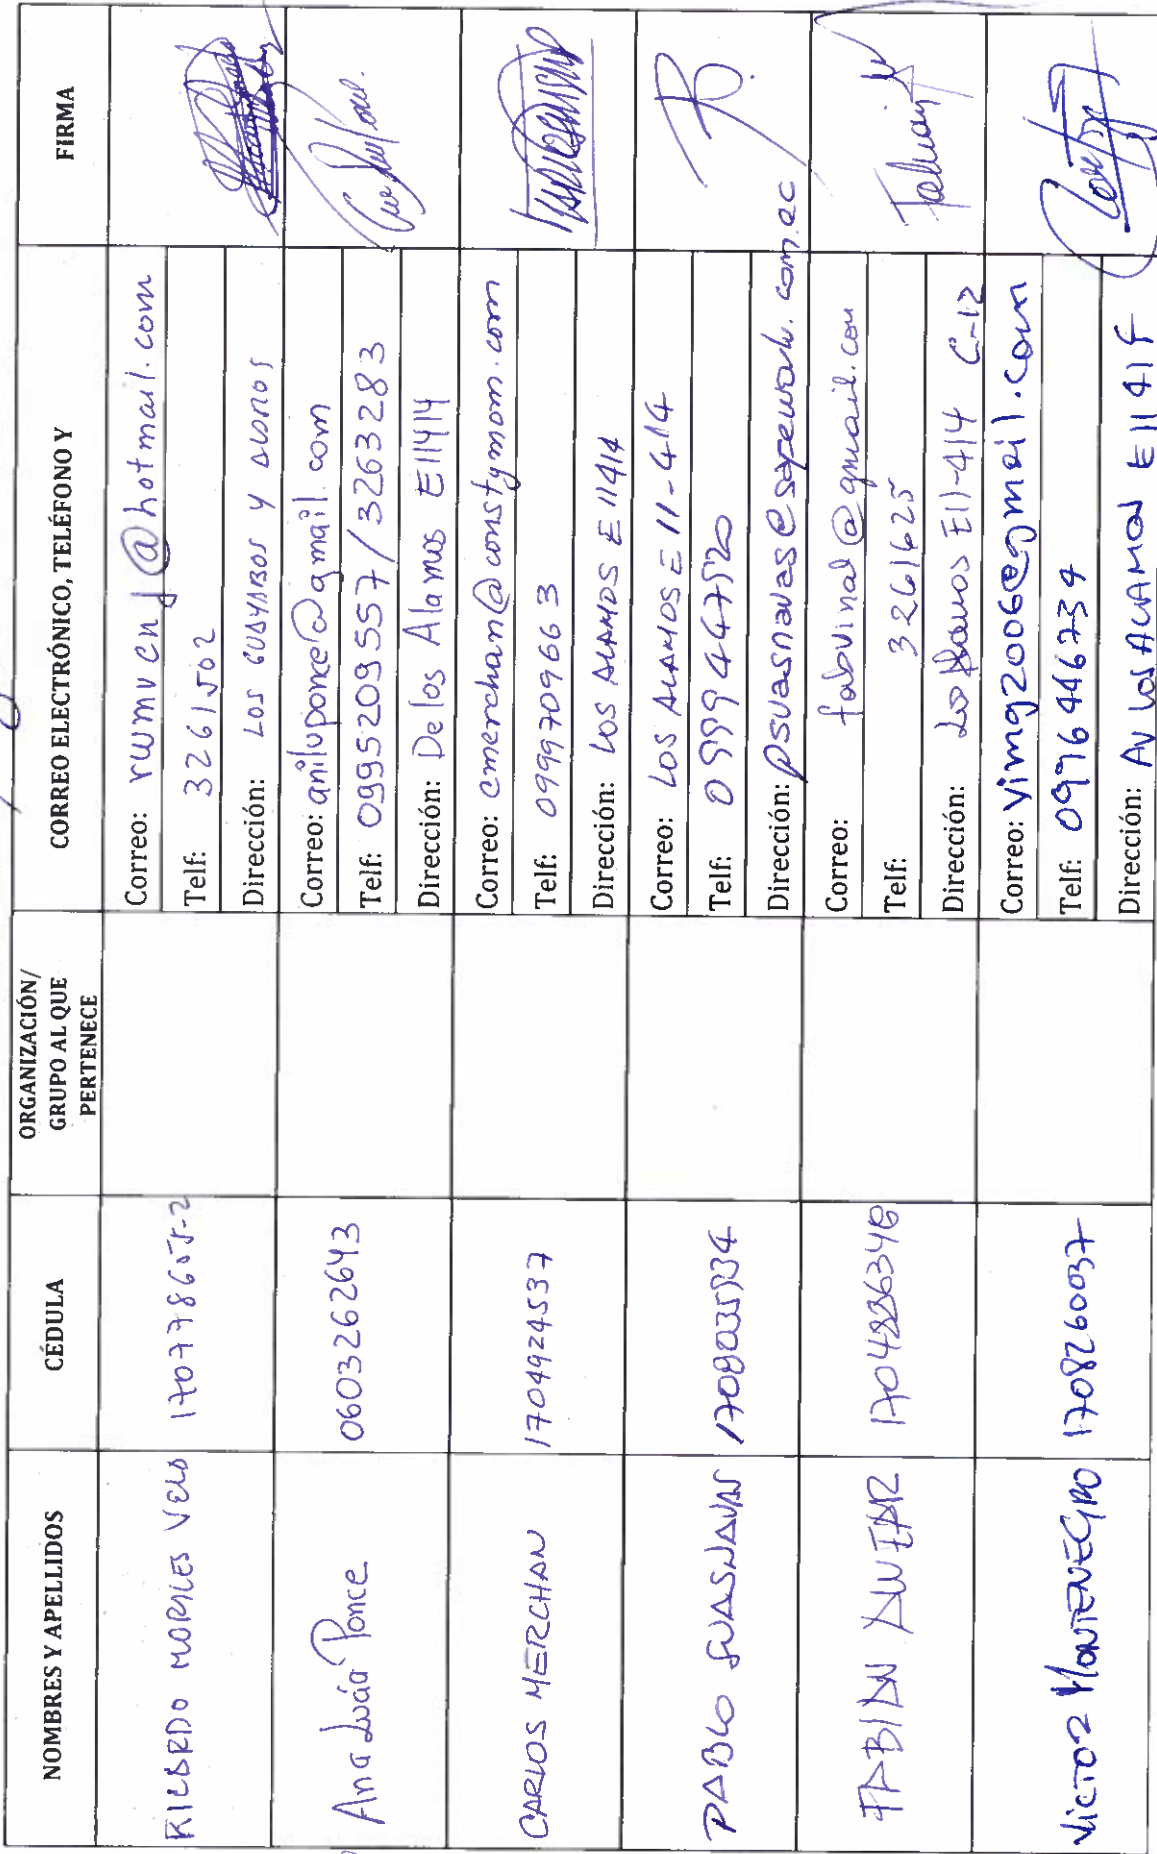 NOMBRES Y APELLIDOS CÉDULA ORGANIZACIÓN/ GRUPO AL QUE PERTENECE CORREO ELECTRÓNICO, TELÉFONO Y FIRMA
RICARDO MORALES VELA 170778605-2
Correo: rwmvcnd@hotmail.com
Telf: 3261502
Dirección: LOS GUAYABOS Y ALAMOS
Ana Lucía Ponce 0603262643
Correo: aniluponce@gmail.com
Telf: 0995209557/3263283
Dirección: De los Alamos E11414
CARLOS MERCHAN 1704924537
Correo: cmerchan@constymom.com
Telf: 0999709663
Dirección: LOS ALAMOS E11414
PABLO SUASNAVAS
Correo: LOS ALAMOS E 11-414
Telf: 0999447520
Dirección: psuasnavas@safework.com.ec
FABIAN
Correo: fabvinal@gmail.com
Telf: 3261625
Dirección: Los Alamos E11-414 C-12
VICTOR MONTENEGRO 1708260037
Correo: vimg2006@gmail.com
Telf: 0996446734
Dirección: AV LOS ALAMOS E11414